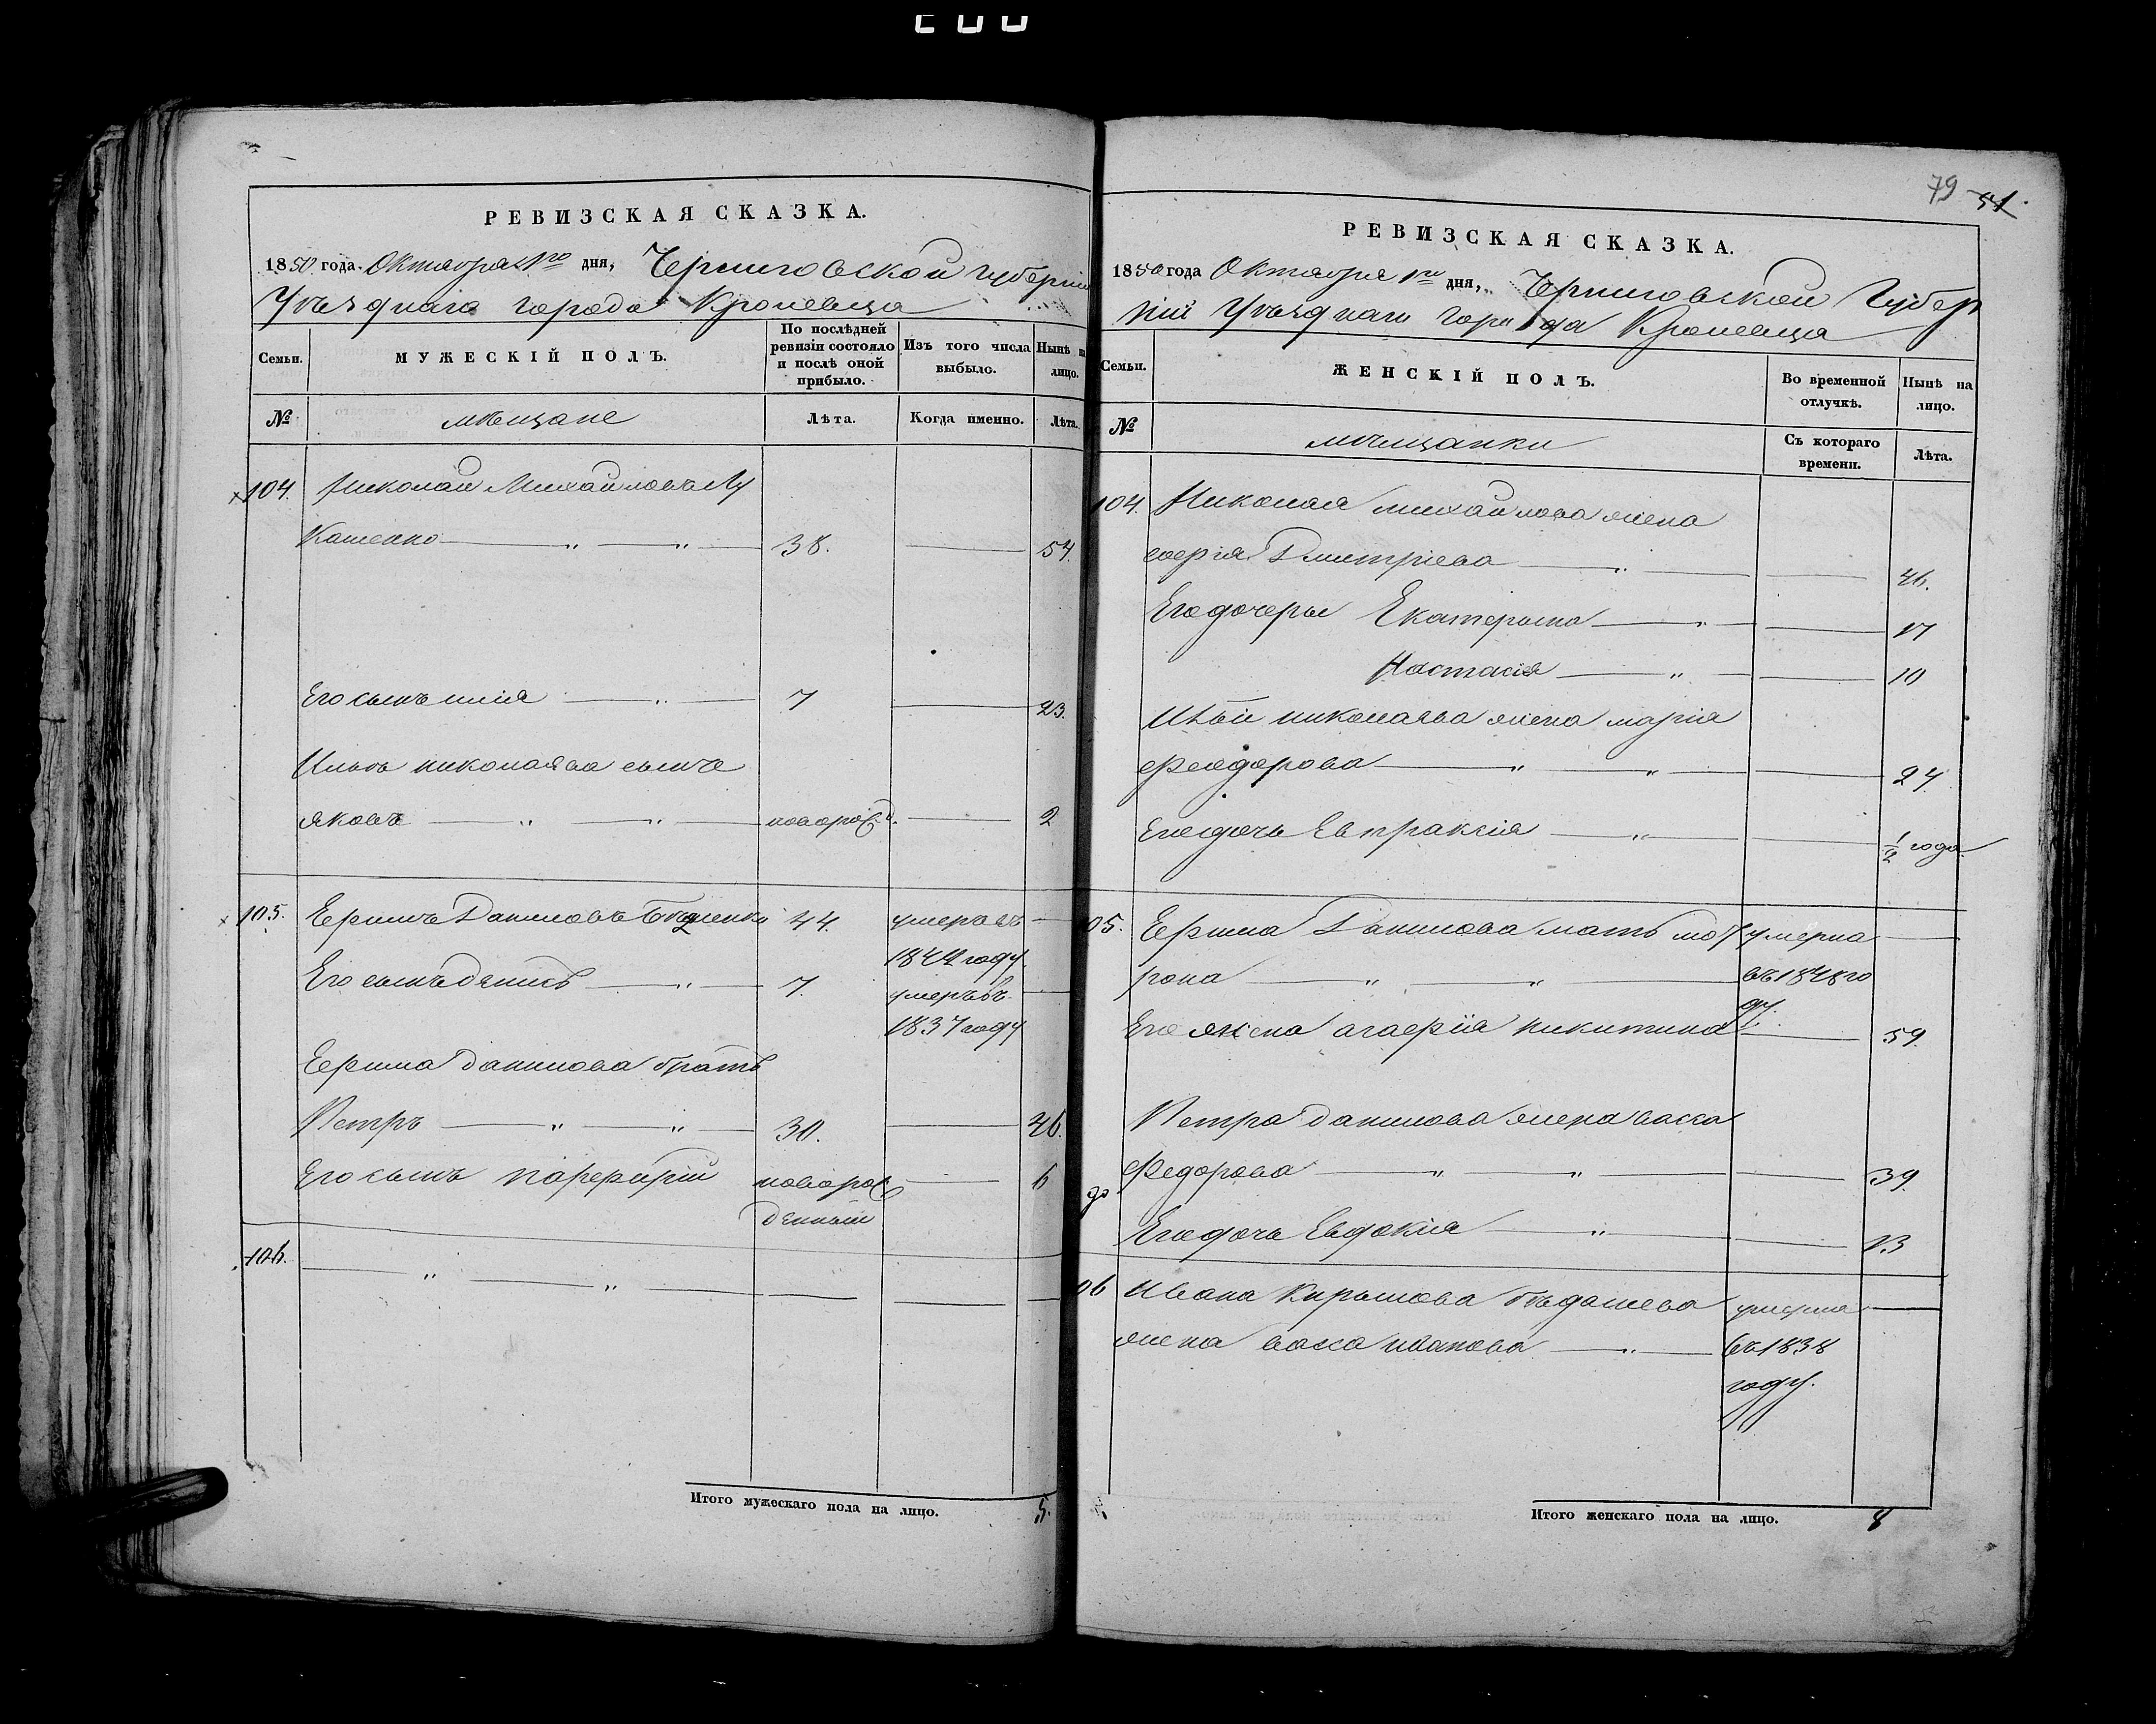 РЕВИЗСКАЯ СКАЗКА.
1850 года Октября 1го дня, Черниговской губерніи
Уѣзднаго города Кролевца
Семьи. МУЖЕСКІЙ ПОЛЪ. По послѣдней ревизіи состояло и послѣ оной прибыло. Изъ того числа выбыло. Нынѣ на лицо.
№ мѣщане Лѣта. Когда именно. Лѣта.
104. Николай Михайловъ Лу
кашенко 38. 54.
Его сынъ илія 7 23.
Ильи николаева сынъ
яковъ новорожд. 2
105. Ефимъ Даниловъ 44. умеръ въ
1842 году
Его сынъ денисъ 7. умеръ въ
1837 году
Ефима данилова братъ
Петръ 30. 46.
Его сынъ парфирій новорож 6
денный
106.
Итого мужескаго пола на лицо. 5.
79 51.
РЕВИЗСКАЯ СКАЗКА.
1850 года Октября 1го дня, Черниговской Губер
ніи Уѣзднаго города Кролевца
Семьи. ЖЕНСКІЙ ПОЛЪ. Во временной отлучкѣ. Нынѣ на лицо.
№ мѣщанки Съ котораго времени. Лѣта.
104. Николая михайлова жена
Дмитріева 46.
Его дочери Екатерина 17
Настасія 10
Ильи николаева жена марія
Феодорова 24
Его дочь Евпраксія 1/2 года
105. Ефима Данилова мать мот умерла
рона въ 1848 го
ду
Его жена агафія никитина 59.
Петра данилова жена васса
Федорова 39.
Его дочь Евдокія 13
106 Ивана Кирилова жена васса иванова умерла
въ 1838
году.
Итого женскаго пола на лицо. 8